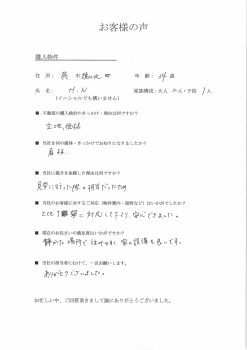 お客様の声
購入物件
住 所: 呉 市 町 年 齢: 歳
氏 名: H.N 家族構成:大人 二人・子供 1人
(イニシャルでも構いません)
■ 不動産の購入検討のきっかけ・理由は何ですか?
立地,価格
■ 当社を何の媒体・きっかけでお知りになりましたか?
看板
■ 当社に媒介を依頼した理由は何ですか?
見学に行った際の担当だったため
■ 当社のお客様に対するご対応(物件案内・説明など)はいかがでしたか?
とても丁寧に対応してくださり、安心できました。
■ 現在のお住まいの満足度はいかがですか?
静かな場所で住みやすく 家の設備も良いです。
■ 当社の担当者にむけて、一言お願いします。
ありがとうございました。
お忙しい中、ご回答頂きまして誠にありがとうございました。